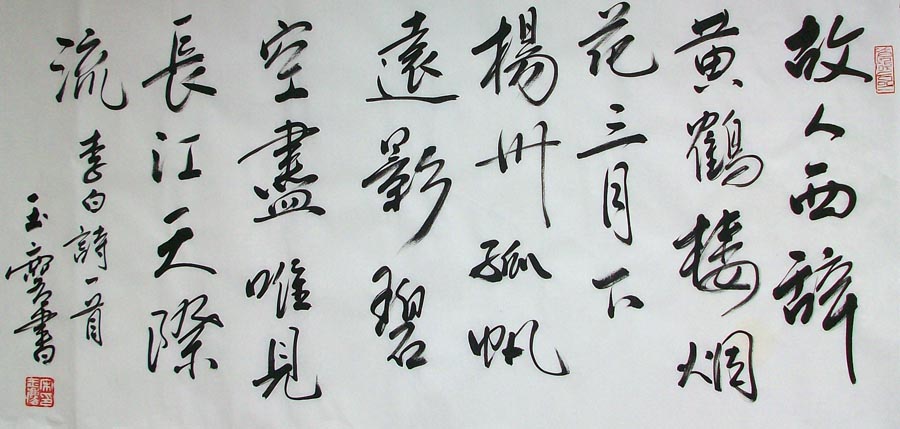 故人西辞
黄鶴楼烟
花三月下
楊州孤帆
遠影碧
空盡唯見
長江天際
流
李白詩一首
玉寳書